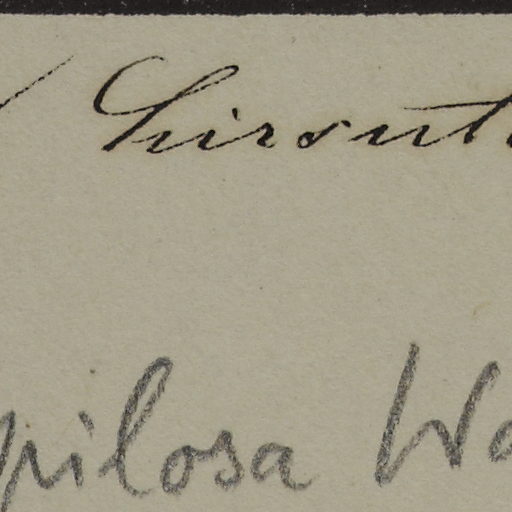 hirsut
pilosa Wa